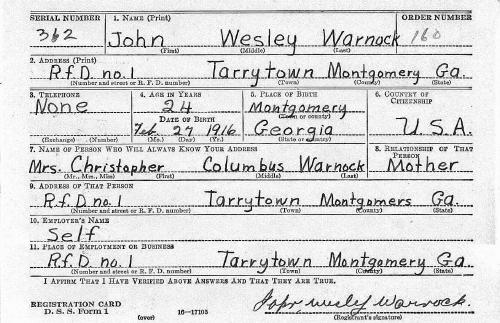 SERIAL NUMBER 1. NAME (Print) ORDER NUMBER
362 John Wesley Warnock 160
(First) (Middle) (Last)
2. ADDRESS (Print)
R.f.D. no. 1 Tarrytown Montgomery Ga.
(Number and street or R. F. D. number) (Town) (County) (State)
3. TELEPHONE 4. AGE IN YEARS 5. PLACE OF BIRTH 6. COUNTRY OF CITIZENSHIP
None 24 Montgomery
DATE OF BIRTH (Town or county)
Feb. 27 1916 Georgia U.S.A.
(Exchange) (Number) (Mo.) (Day) (Yr.) (State or country)
7. NAME OF PERSON WHO WILL ALWAYS KNOW YOUR ADDRESS 8. RELATIONSHIP OF THAT PERSON
Mrs. Christopher Columbus Warnock Mother
(Mr., Mrs., Miss) (First) (Middle) (Last)
9. ADDRESS OF THAT PERSON
R.f.D. no. 1 Tarrytown Montgomers Ga.
(Number and street or R. F. D. number) (Town) (County) (State)
10. EMPLOYER'S NAME
Self
11. PLACE OF EMPLOYMENT OR BUSINESS
R.f.D. no. 1 Tarrytown Montgomery Ga.
(Number and street or R. F. D. number) (Town) (County) (State)
I AFFIRM THAT I HAVE VERIFIED ABOVE ANSWERS AND THAT THEY ARE TRUE.
REGISTRATION CARD
D. S. S. Form 1 (over) 16—17105 Wesly Warnock.
(Registrant's signature)